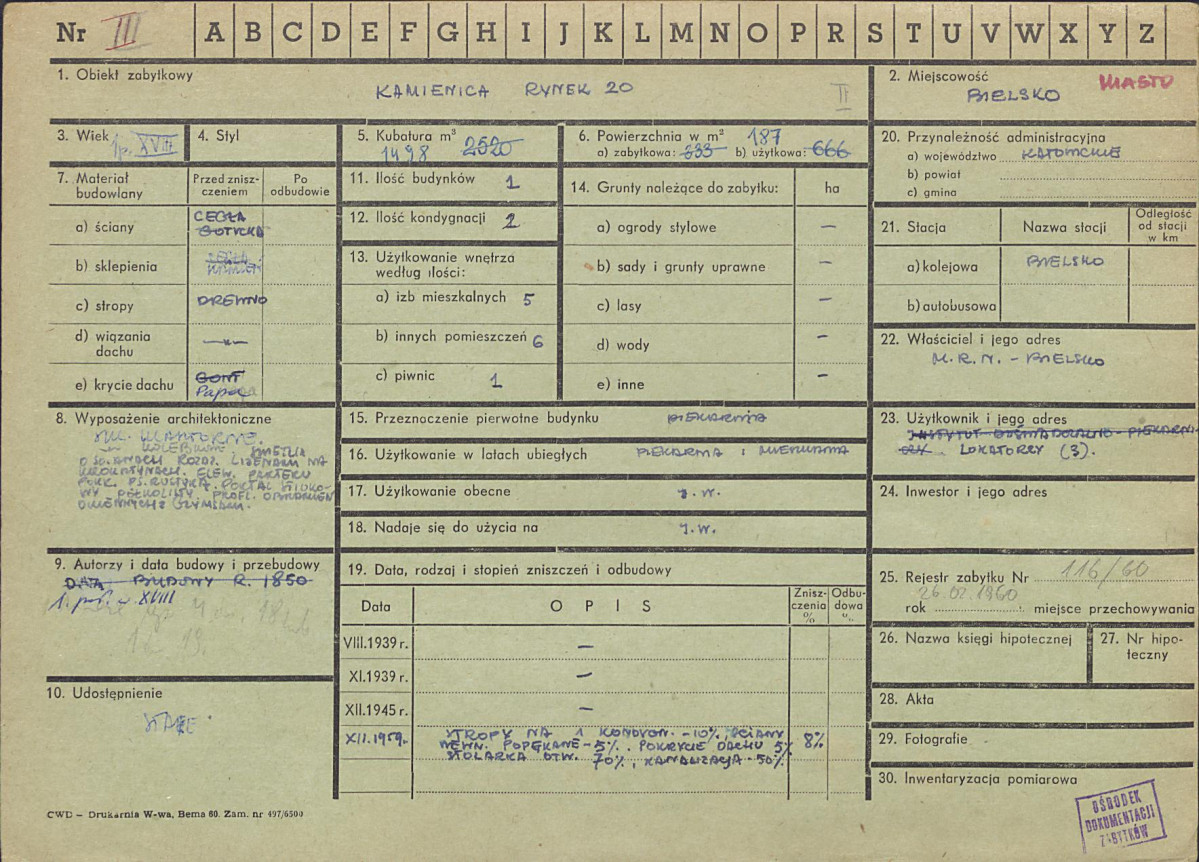 Nr III A B C D E F G H I J K L M N O P R S T U V W X Y Z
1. Obiekt zabytkowy
KAMIENICA RYNEK 20 II
2. Miejscowość MIASTO
BIELSKO
3. Wiek
1p. XVIII
4. Styl
5. Kubatura m³
1498 2520
6. Powierzchnia w m² 187
a) zabytkowa: 333 b) użytkowa: 666
20. Przynależność administracyjna
a) województwo KATOWICKIE
b) powiat
c) gmina
7. Materiał budowlany
Przed zniszczeniem
Po odbudowie
a) ściany CEGŁA GOTYCKA
b) sklepienia
c) stropy DREWNO
d) wiązania dachu —"—
e) krycie dachu GONT
Papa
11. Ilość budynków 1
12. Ilość kondygnacji 2
13. Użytkowanie wnętrza
według ilości:
a) izb mieszkalnych 5
b) innych pomieszczeń 6
c) piwnic 1
14. Grunty należące do zabytku: ha
a) ogrody stylowe —
b) sady i grunty uprawne —
c) lasy —
d) wody —
e) inne —
21. Stacja
Nazwa stacji
Odległość
od stacji
w km
a) kolejowa BIELSKO
b) autobusowa
22. Właściciel i jego adres
M.R.N. - BIELSKO
8. Wyposażenie architektoniczne
KOLEBKOWE
LIZENAMI NA
ELEW. PARTERU
PS. RUSTYKA. PORTAL
PÓŁKOLISTY. PROFL.
GZYMSAMI.
15. Przeznaczenie pierwotne budynku PIEKARNIA
16. Użytkowanie w latach ubiegłych PIEKARNIA I MIESZKANIA
17. Użytkowanie obecne J.W.
18. Nadaje się do użycia na J.W.
23. Użytkownik i jego adres
LOKATORZY (3).
24. Inwestor i jego adres
9. Autorzy i data budowy i przebudowy
DATA BUDOWY R. 1850
1. poł. w XVIII
10. Udostępnienie
STAŁE
19. Data, rodzaj i stopień zniszczeń i odbudowy
Data
OPIS
Zniszczenia
%
Odbudowa
%
VIII.1939 r. —
XI.1939 r. —
XII.1945 r. —
XII.1959. STROPY NA 1 KONDYGN. -10%, ŚCIANY 8%
WEWN. POPĘKANE - 5%. POKRYCIE DACHU 5%
STOLARKA OTW. 70%, KANALIZACJA - 50%
25. Rejestr zabytku Nr 116/60
26.02.1960
rok miejsce przechowywania
26. Nazwa księgi hipotecznej
27. Nr hipoteczny
28. Akta
29. Fotografie
30. Inwentaryzacja pomiarowa
OŚRODEK
DOKUMENTACJI
ZABYTKÓW
CWD – Drukarnia W-wa, Bema 60. Zam. nr 497/6500